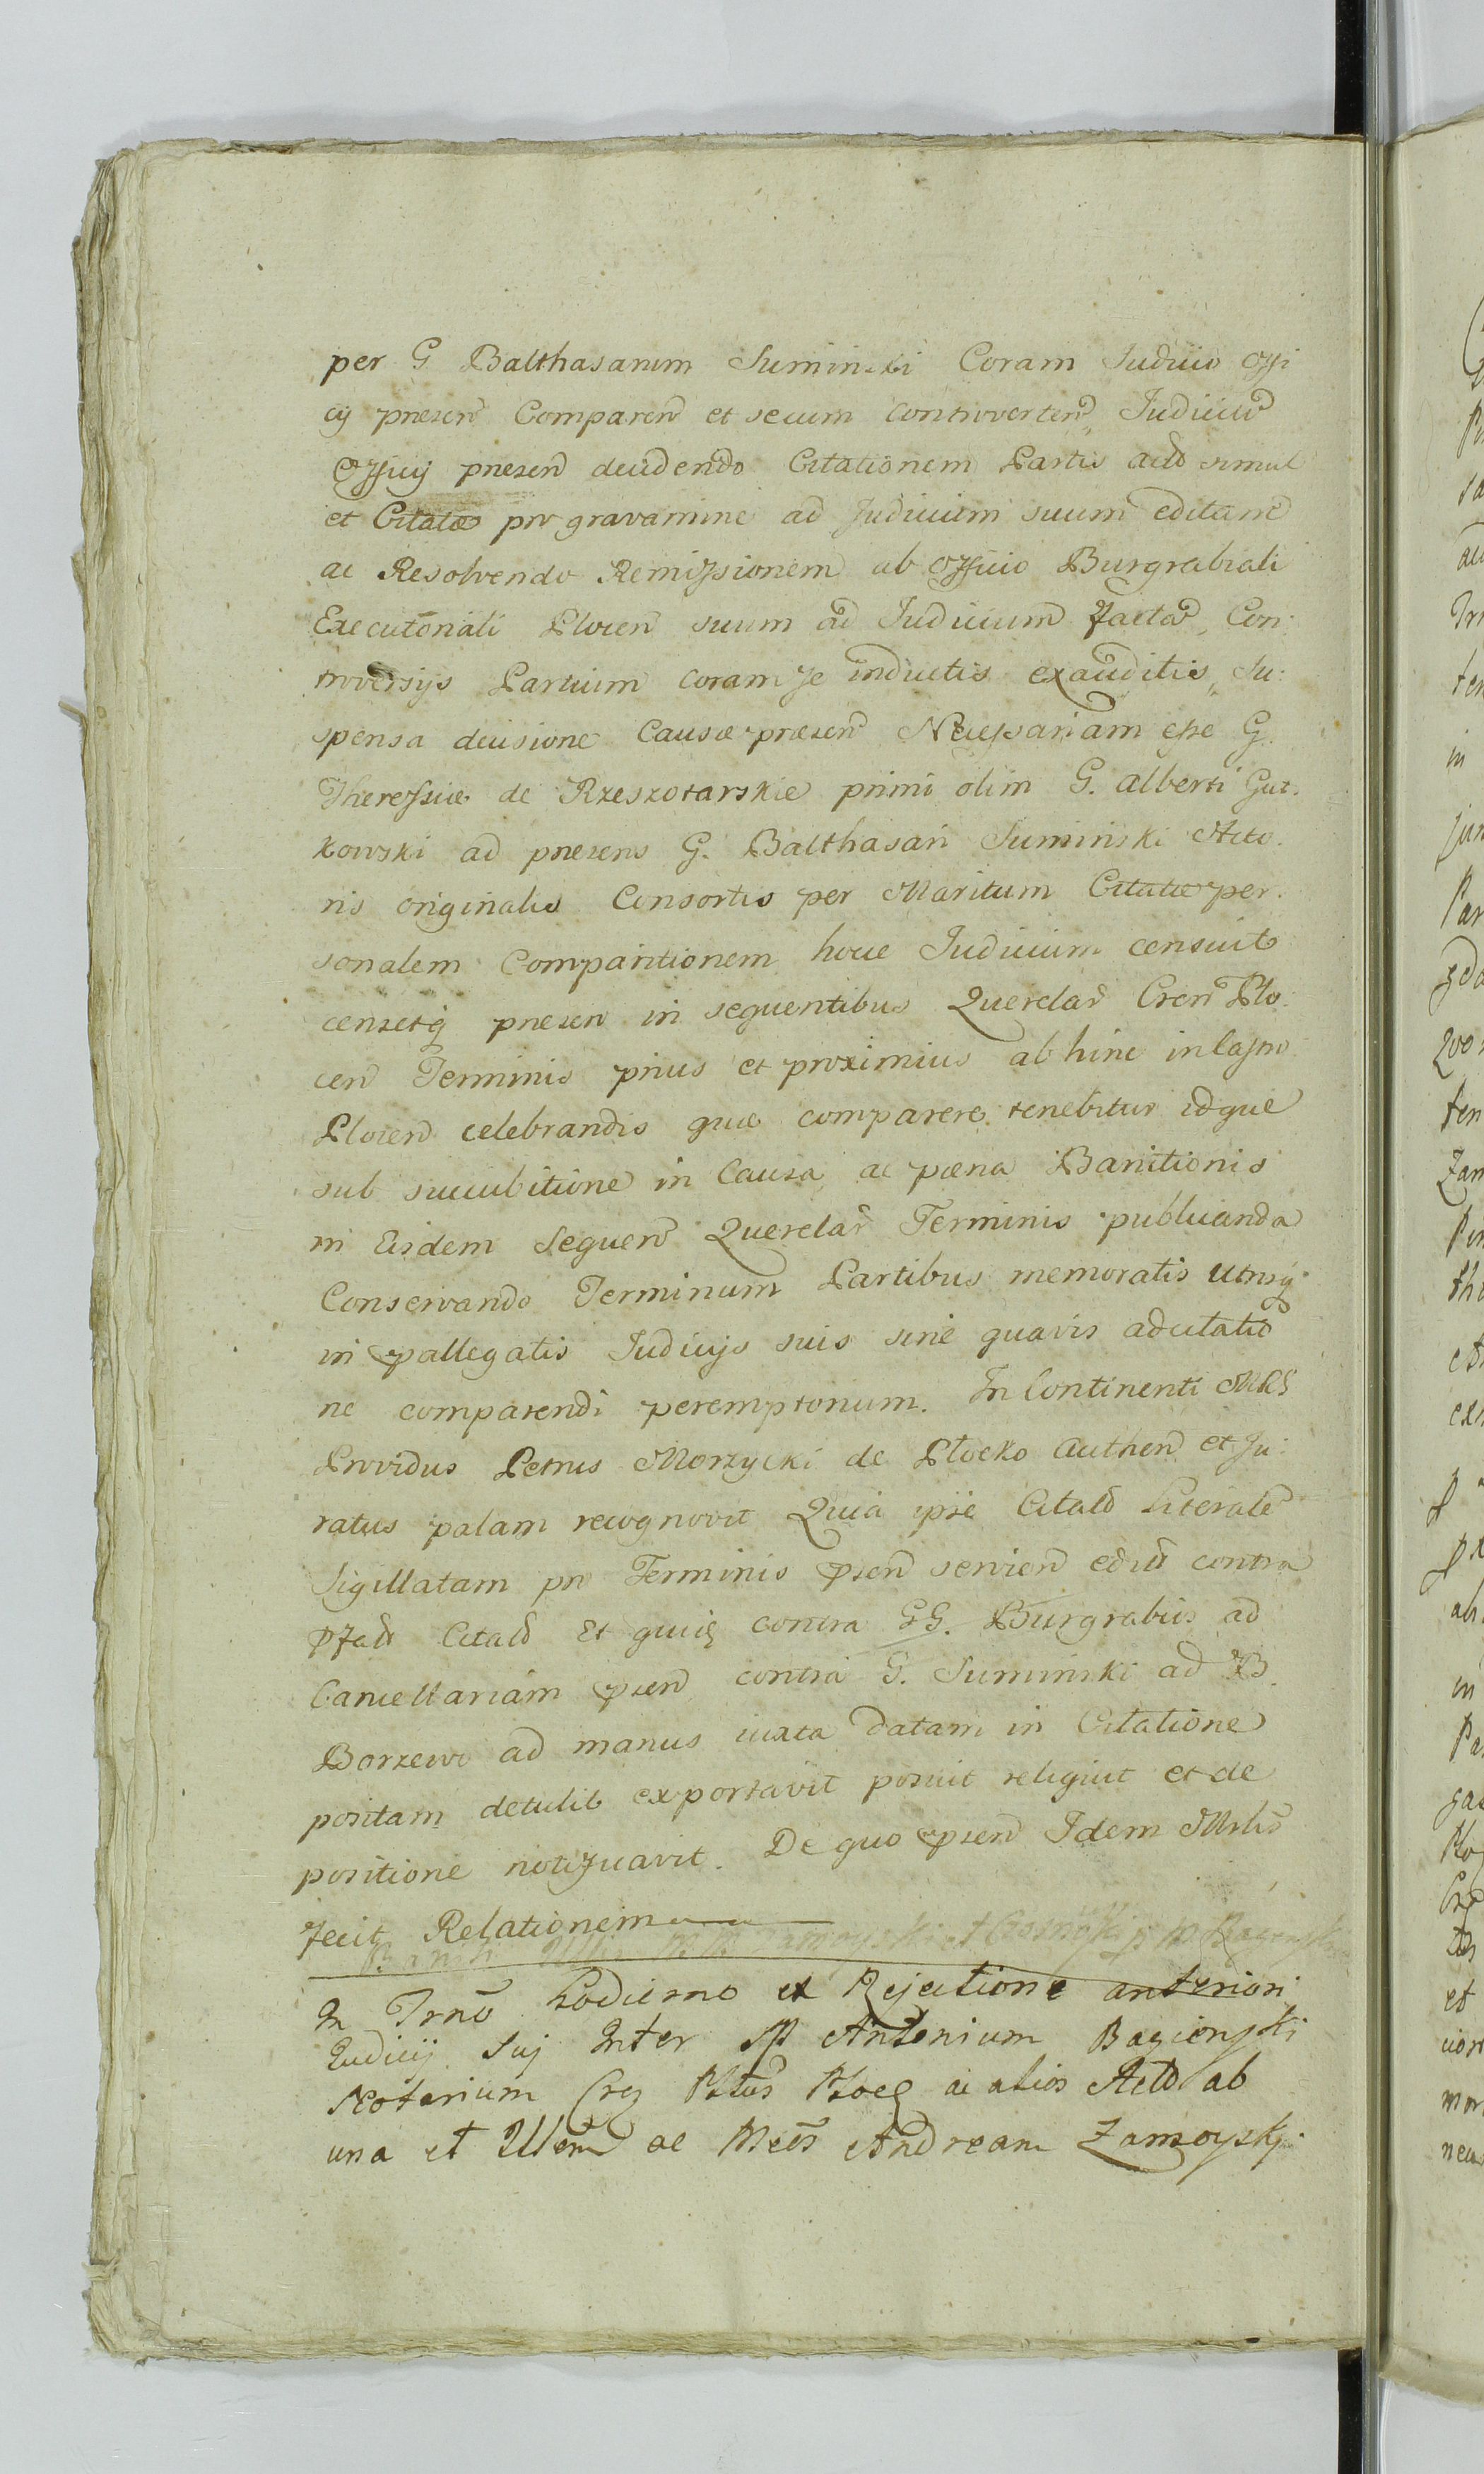 per G Balthasarum Suminski Coram Judicio Offi
cij presen Comparen et secum controverten, Judiciu
Officij presen decidendo Citationem Partis acto simul
et Citatæ pro gravamine ad Judicium suum editam
ac Resolvendo Remissionem ab Officio Burgrabiali
Executoriali Plocen suum ad Judicium factã, Con:
troversijs Partium coram se inductis exauditis, Su:
spensa decisione Causæ præsen Necessariam esse G.
Theressiæ de Rzeszotarskie primi olim G. Alberti Gut.
kowski ad præsens G. Balthasari Suminski Acto.
ris originalis Consortis per Maritum Citatæ per.
sonalem Comparitionem hocce Judicium censuit
censetq presen in sequentibus Querelar Cren Plo.
cen Terminis prius et proximius ab hinc in Castro
Plocen celebrandis quæ comparere tenebitur idque
sub succubitione in Causa ac pæna Banitionis
in Eisdem Sequen Querelar Terminis publicanda
Conservando Terminum Partibus memoratis utrisq
in pallegatis Judicijs suis sine quavis adcitatio
ne comparendi peremptorium. In Continenti Mrls
Providus Petrus Morzycki de Plocko Authen et Ju:
ratus palam recognovit Quia ipse Citato Literale
Sigillatam pro Terminis psen servien edit contra
pfat Citato Et quiq contra GG. Burgrabiis ad
Cancellariam psen contra G. Suminski ad B.
Borzewo ad manus iuxta datam in Citatione
positam detulit exportavit posuit religiut et de
positione notificavit. De quo psen Idem Mrlis
fecit Relationem
In Trno hodierno ex Rejectione anteriori
Judicij Suj Inter M Antonium Bagienski
Notarium Crg Pltus Ploc ac alios Acto ab
una et Illem ac Mcos Andream Zamoyski